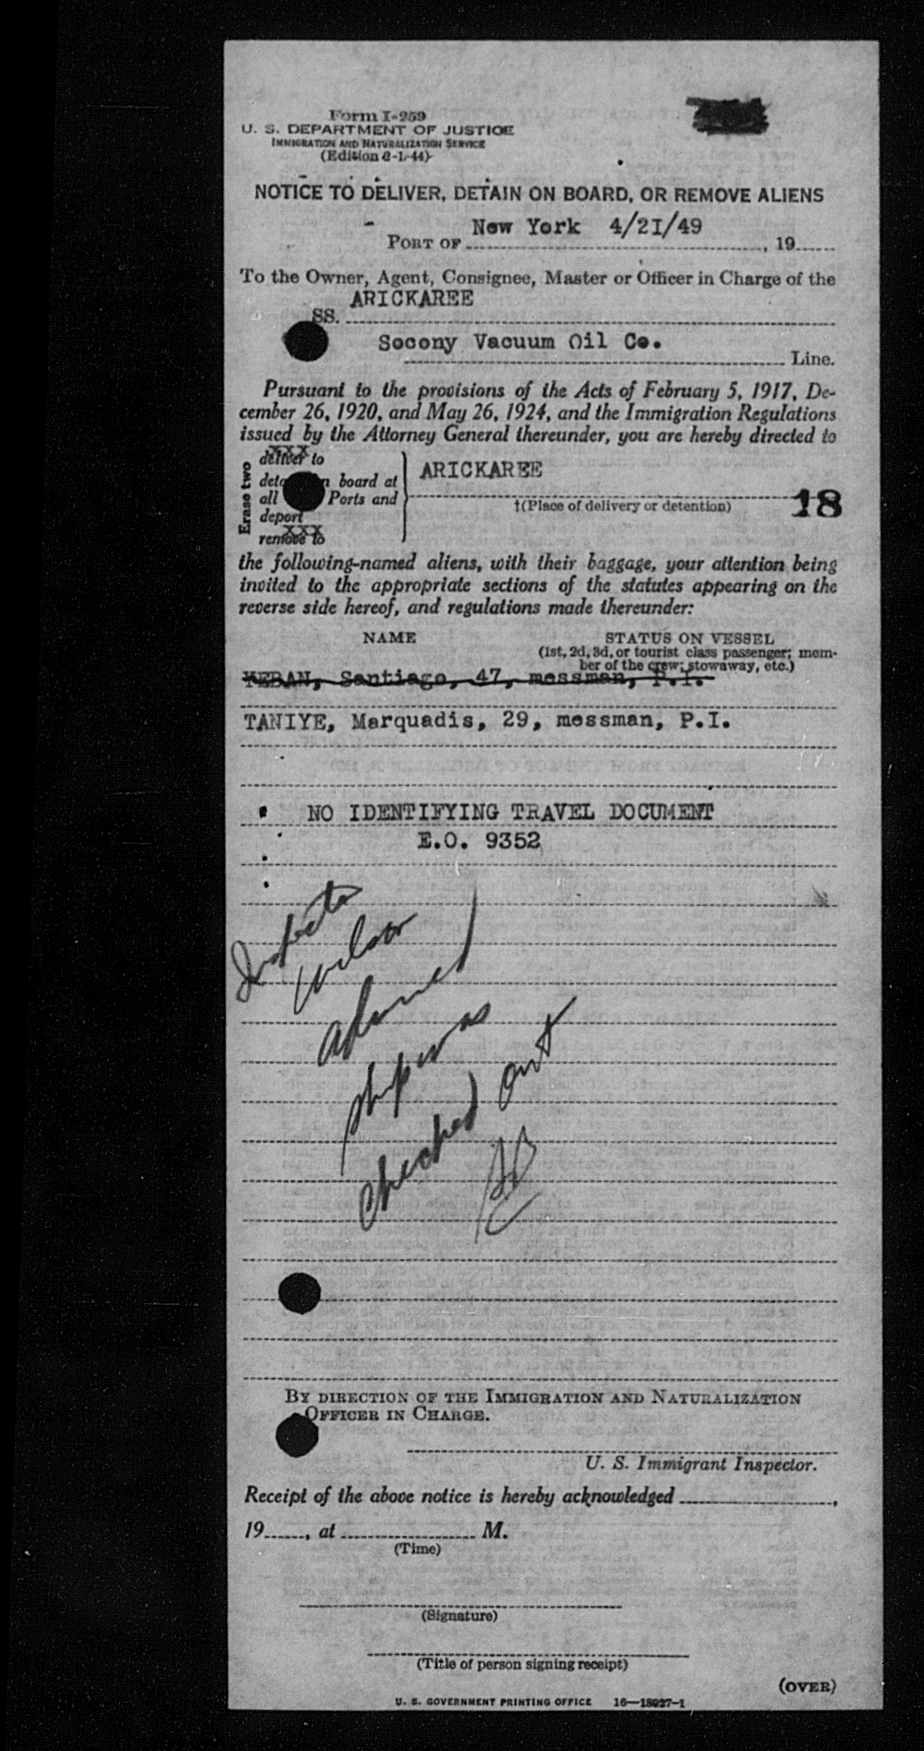 Form I-259
U. S. DEPARTMENT OF JUSTICE
IMMIGRATION AND NATURALIZATION SERVICE
(Edition 2-1-44)
NOTICE TO DELIVER, DETAIN ON BOARD, OR REMOVE ALIENS
New York 4/21/49
PORT OF , 19
To the Owner, Agent, Consignee, Master or Officer in Charge of the
ARICKAREE
SS.
Socony Vacuum Oil Co.
Line.
Pursuant to the provisions of the Acts of February 5, 1917, De-
cember 26, 1920, and May 26, 1924, and the Immigration Regulations
issued by the Attorney General thereunder, you are hereby directed to
Erase two
deliver to
board at
all Ports and
deport
remove to
XXX
XXX
ARICKAREE
†(Place of delivery or detention)
18
the following-named aliens, with their baggage, your attention being
invited to the appropriate sections of the statutes appearing on the
reverse side hereof, and regulations made thereunder:
NAME STATUS ON VESSEL
(1st, 2d, 3d, or tourist class passenger; mem-
ber of the crew; stowaway, etc.)
Santiago, 47, messman, P.I.
TANIYE, Marquadis, 29, messman, P.I.
NO IDENTIFYING TRAVEL DOCUMENT
E.O. 9352
Wilson
ship was
checked out
BY DIRECTION OF THE IMMIGRATION AND NATURALIZATION
OFFICER IN CHARGE.
U. S. Immigrant Inspector.
Receipt of the above notice is hereby acknowledged ,
19 , at M.
(Time)
(Signature)
(Title of person signing receipt)
(OVER)
U. S. GOVERNMENT PRINTING OFFICE 16—18027-1